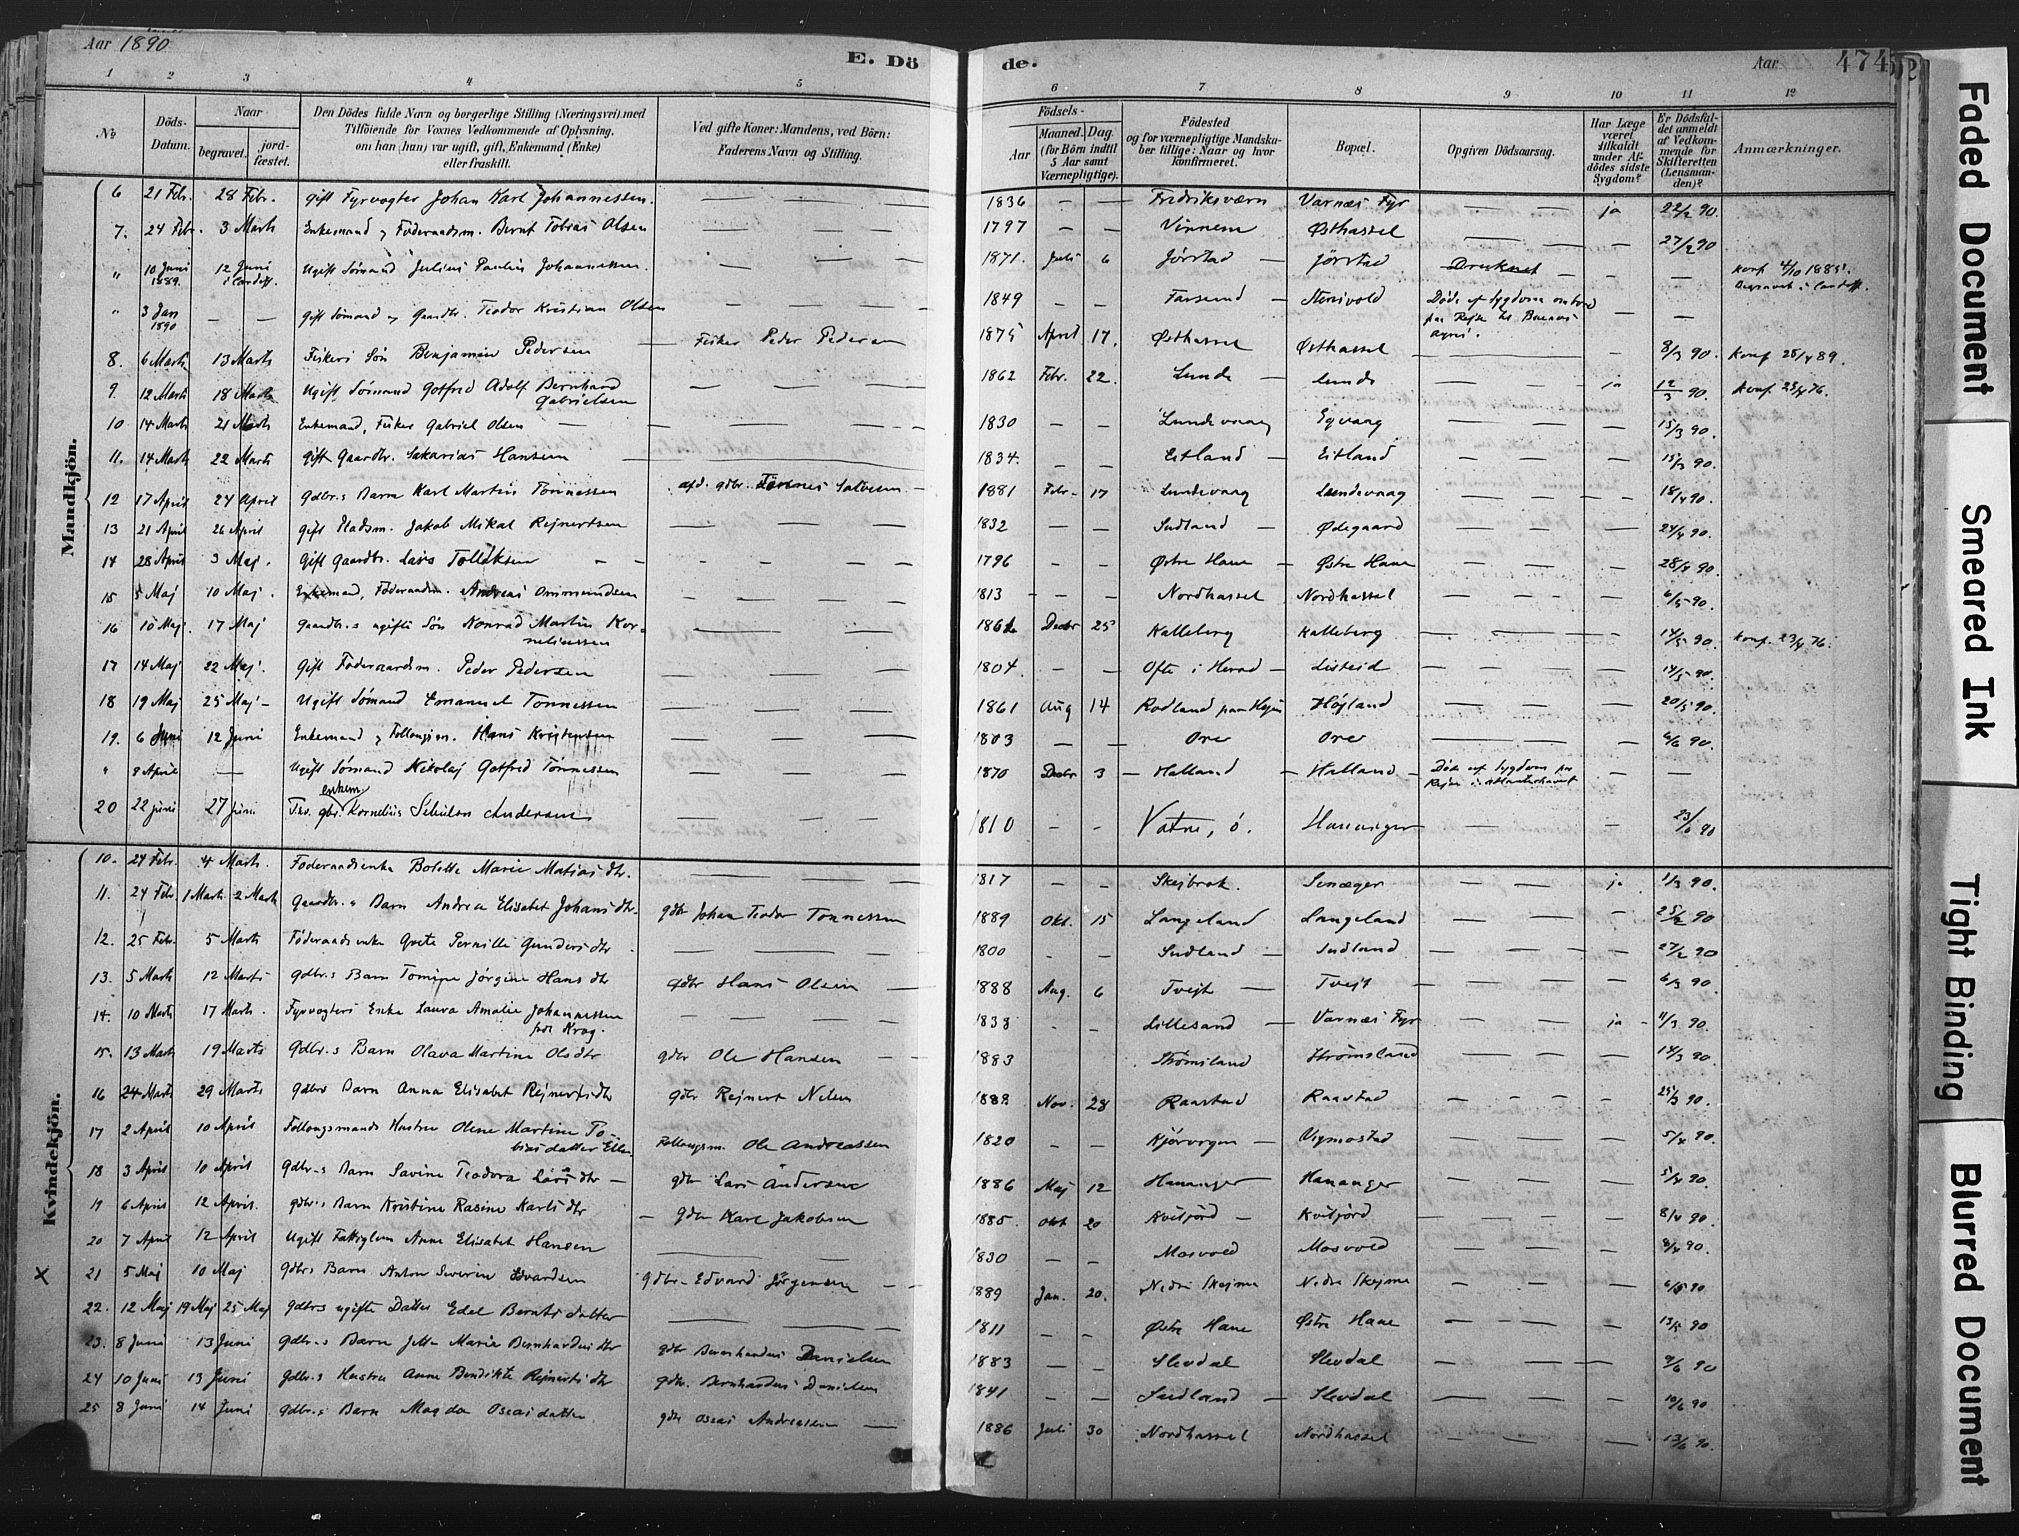 Aar 1890
E. Dö
de.
Aar
474
1 2 3 4 5 6 7 8 9 10 11 12
No
Döds-
Datum.
Naar
begravet.
jord-
fæstet.
Den Dödes fulde Navn og borgerlige Stilling (Næringsvei) med
Tilföiende for Voxnes Vedkommende af Oplysning,
om han (hun) var ugift, gift, Enkemand (Enke)
eller fraskilt.
Ved gifte Koner: Mandens, ved Börn:
Faderens Navn og Stilling.
Födsels-
Aar
Maaned.
Dag.
(for Börn indtil
5 Aar samt
Værnepligtige).
Födested
og for værnepligtige Mandska-
ber tillige: Naar og hvor
konfirmeret.
Bopæl.
Opgiven Dödsaarsag.
Har Læge
været
tilkaldt
under Af-
dödes sidste
Sygdom?
Er Dödsfal-
det anmeldt
af Vedkom-
mende for
Skifteretten
(Lensman-
den)?
Anmærkninger.
Mandkjön.
6 21 Febr. 28 Febr. gift Fyrvogter Johan Karl Johannessen. 1836 Fredriksværn Varnæs Fyr ja 22/2 90.
7. 24 Febr. 3 Marts Enkemand og Föderaadsm. Bernt Tobias Olsen 1797 Vinnem Østhassel 27/2 90
" 10 Juni 1889. 12 Juni i Cardiff. Ugift Sømand Julius Paulus Johannessen. 1871. Juli 6 Jørstad Jørstad Druknet konf. 4/10 1885. Begravet i Cardiff.
" 3 Jan 1890 gift Sømand og Gaardbr. Teodor Kristian Olsen 1849 Farsund Stenivold Døde af Sygdom ombord
paa Rejse til Buenos
ayres.
8. 6 Marts 13 Marts Fiskers Søn Benjamin Pedersen Fisker Peder Pedersen 1875 April 17. Østhassel Østhassel 8/3 90. Konf 28/4 89.
9. 12 Marts 18 Marts Ugift Sømand Gotfred Adolf Bernhard
Gabrielsen 1862 Febr. 22. Lunde Lunde ja 12/3 90. Konf. 23/4 76.
10 14 Marts 21 Marts Enkemand, Fisker Gabriel Olsen 1830 Lundevaag Eqvaag 15/3 90.
11. 14 Marts 22 Marts gift Gaardbr. Sakarias Hansen 1834. Eitland Eitland 15/3 90.
12 17 April 24 April gdbr.s Barn Karl Martin Tönnessen afd. gdbr. Tönnes Salvesen 1881 Febr. 17 Lundevaag Lundevaag 18/4 90.
13 21 April 26 April gift Pladsm. Jakob Mikal Rejnertsen 1832 Sudland Ødegaard 24/4 90.
14 28 April 3 Maj. Gift Gaardbr. Lars Tollaksen 1796 Østre Hane Østre Hane 28/4 90.
15 5 Maj 10 Maj. Enkemand, Föderaadm. Andreas Ommundsen 1813 Nordhassel Nordhassel 6/5 90.
16 10 Maj. 17 Maj Gaardbr.s ugifte Søn Konrad Martin Kor-
neliussen Decbr 25 Kalleberg Kalleberg 14/5 90. Konf. 23/4 76.
17 14 Maj 22 Maj. Gift Föderaadsm. Peder Pedersen 1804. Ofte i Herad Listeid 14/5 90.
18 19 Maj 25 Maj Ugift Sømand Emanuel Tönnessen 1861 Aug 14 Rodland paa Højland 20/5 90.
19. 6 Juni 12 Juni Enkemand og Follougsm. Hans Kristensen 1803 Ore Ore 6/6 90.
" 9 April Ugift Sømand Nikolaj Gotfred Tönnessen 1870 Decbr 3 Halland Halland Døde af Sygdom paa
Rejse i Atlanterhavet
20 22 juni 27 juni. enkem. gbr. Kornelius Andersen 1810 Vatne, ö. Hananger 23/6 90
Kvindekjön.
10. 27 Febr. 4 Marts. Föderaadsenke Bolette Marie Matiasdtr. 1817 Skejbrok. Senæger ja 1/3 90.
11. 24 Febr. 1 Marts 2 Marts Gaardbr.s Barn Andrea Elisabet Johansdtr. gdbr Johan Teodor Tönnessen 1889 Okt. 15 Langeland Langeland 25/2 90
12. 25 Febr. 5 Marts Föderaadsenke Grete Pernille Gundersdtr 1800 Sudland Sudland 27/2 90
13. 5 Marts 12 Marts gdbr.s Barn Tomine Jörgine Hansdtr gdbr Hans Olsen 1888 Aug. 6 Tvejt Tvejt 6/3 90.
14. 10 Marts 17 Marts. Fyrvogters Enke Laura Amalie Johannessen
født Krog. 1838 Lillesand Varnæs Fyr ja 11/3 90.
15. 13 Marts 19 Marts Gdbr.s Barn Olava Martine Olsdtr gdbr Ole Hansen 1883 Strømsland Strømsland 14/3 90
16 24 Marts 29 Marts gdbrs Barn Anna Elisabet Rejnertsdtr gdbr Rejnert Nilsen 1888. Nov. 28 Raastad Raastad 25/3 90.
17 2 April 10 April Follougsmands Hustru Olene Martine To-
biasdatter Follougsm. Ole Andreassen 1820 Vigmostad 5/4 90.
18 3 April 10 April Gdbr.s Barn Savine Teodora Larsdtr gdbr Lars Andersen 1886 Maj 12 Hananger Hananger 5/4 90.
19 6 April 12 April. gdbr.s Barn Kristine Rasine Karlsdtr gdbr Karl Jakobsen 1885. Okt 20 Kviljord Kviljord 8/4 90.
20 7 April 12 April Ugift Fattiglem Anne Elisabet Hansen 1830 Mosvold Mosvold 8/4 90.
X 21 5 Maj 10 Maj gdbrs Barn Anton Severin Edvardsen gdbr. Edvard Jörgensen 1889 Jan. 20. Nedre Skejme Nedre Skejme 6/5 90
22. 12 Maj 19 Maj 25 Maj gdbrs ugifte Datter Edel Berntsdatter 1811 Østre Hane Østre Hane 13/5 90
23. 8 Juni 13 Juni gdbr.s Barn Jette Marie Bernhardusdtr gdbr Bernhardus Danielsen 1883 Slevdal Slevdal 9/6 90
24 10 Juni 13 Juni gdbr.s Hustru Anne Bendikte Rejnertsdtr gdbr. Bernhardus Danielsen 1841 Sudland Slevdal 10/6 90
25 8 Juni 14 Juni gdbr.s Barn Magda Oscarsdatter gdbr Oscar Andreassen 1886 Juli 30 Nordhassel Nordhassel 13/6 90.
Faded Document
Smeared Ink
Tight Binding
Blurred Document